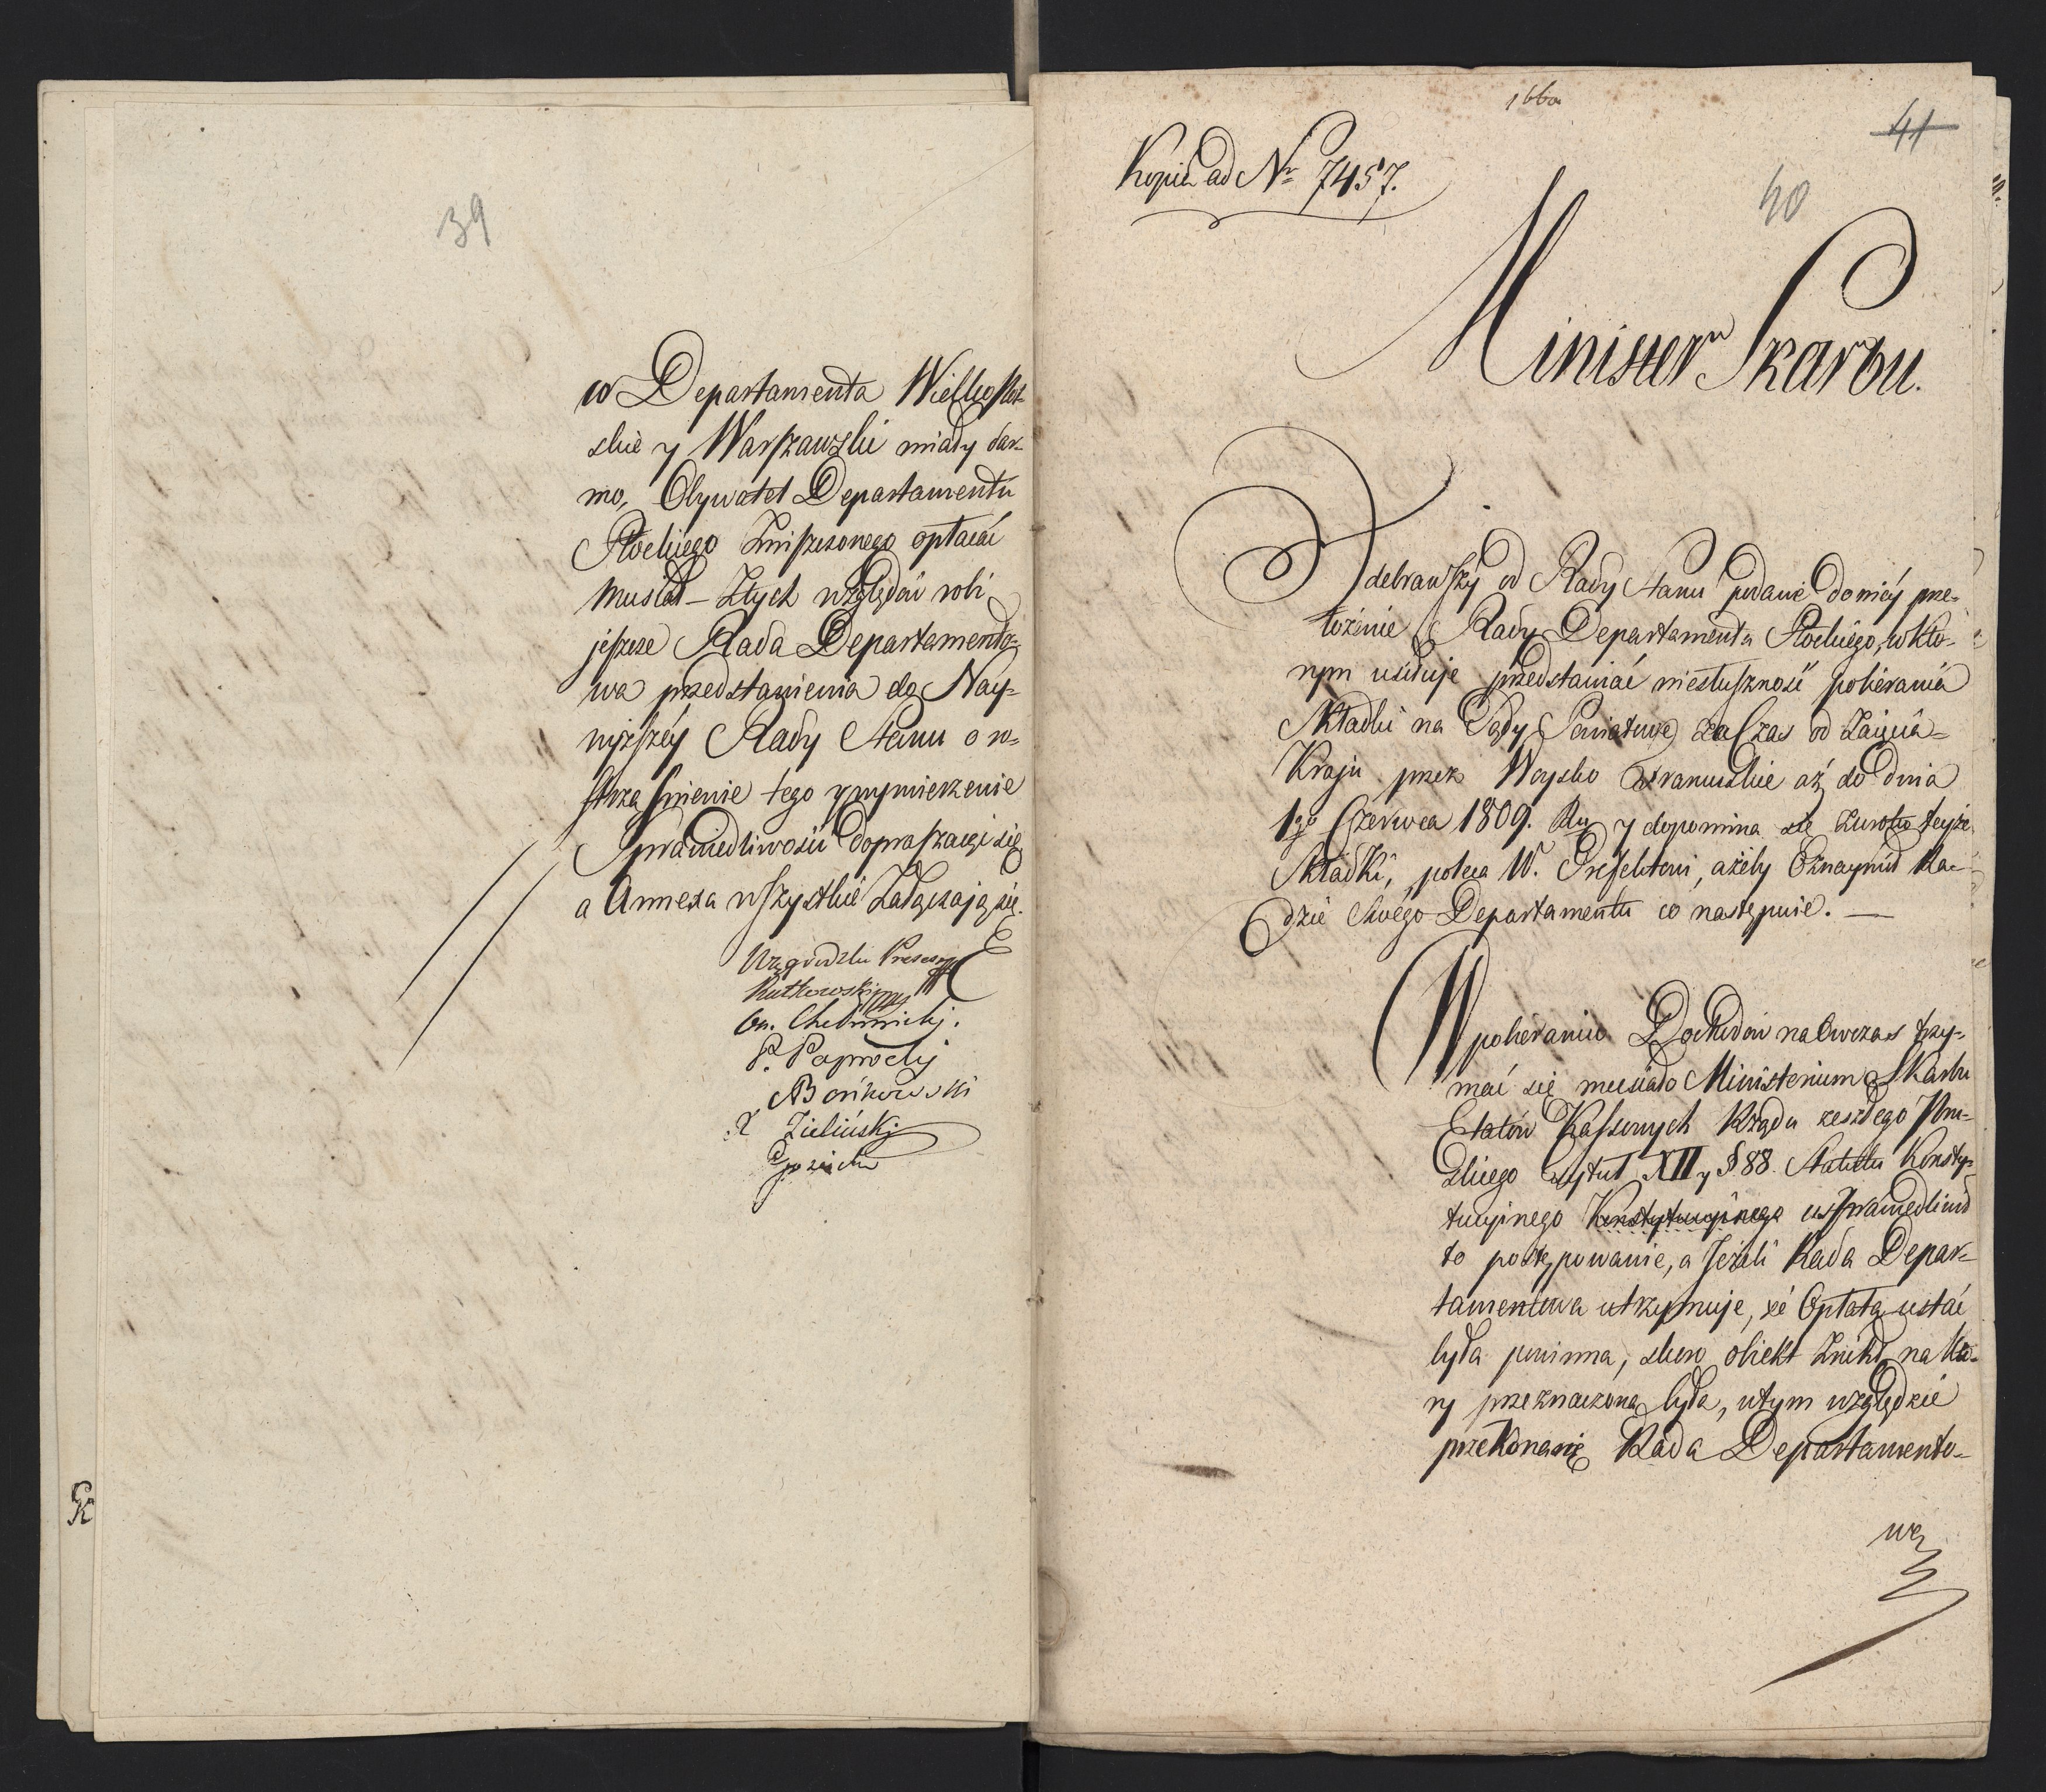 39
w Departamenta Wielkopol-
skie y Warszawskie miały dar-
mo, Obywatel Departamentu
Płockiego Zniszczonego opłacać
musiał – Ztych względów robi
jeszcze Rada Departamento-
wa przedstawienia do Nay-
wyższéy Rady Stanu o w-
strząśnienie tego y wymierzenie
Sprawiedliwości dopraszaiąc się
a Annexa wszystkie Załączają się.
Prezes
Rutkowski
Chełmicki.
P. Paprocki
Bońkowski
X Zieliński
GK
166a
41
Kopia ad Nr 7457.
40
Minister Skarbu.
Odebrawszy od Rady Stanu podane do niéy prze-
łożenie Rady Departamentu Płockiego, w któ-
rym usiłuje przedstawiać niesłuszność pobierania
Składki na Sądy Powiatowe za Czas od Zajęcia
Kraju przez Woysko Francuzkie aż do dnia
1go Czerwca 1809. Ru y dopomina się zwrotu teyże
Składki, poleca W. Prefektowi, ażeby Oznaymił Ra-
dzie Swego Departamentu co następuie. —
W pobieraniu Dochodów na ówczas trzy-
mać się musiało Ministerium Skarbu
Etatów Kassowych Rządu zeszłego Pru-
skiego Tytuł XII y § 88. Statutu Konsty-
tucyinego Konstytucyinego usprawiedliwił
to postępowanie, a Jeżeli Rada Depar-
tamentowa utrzymuje, że Opłata ustać
była powinna, skoro obiekt Znikł, na któ-
ry przeznaczona była, w tym względzie
przekona się Rada Departamento-
wa